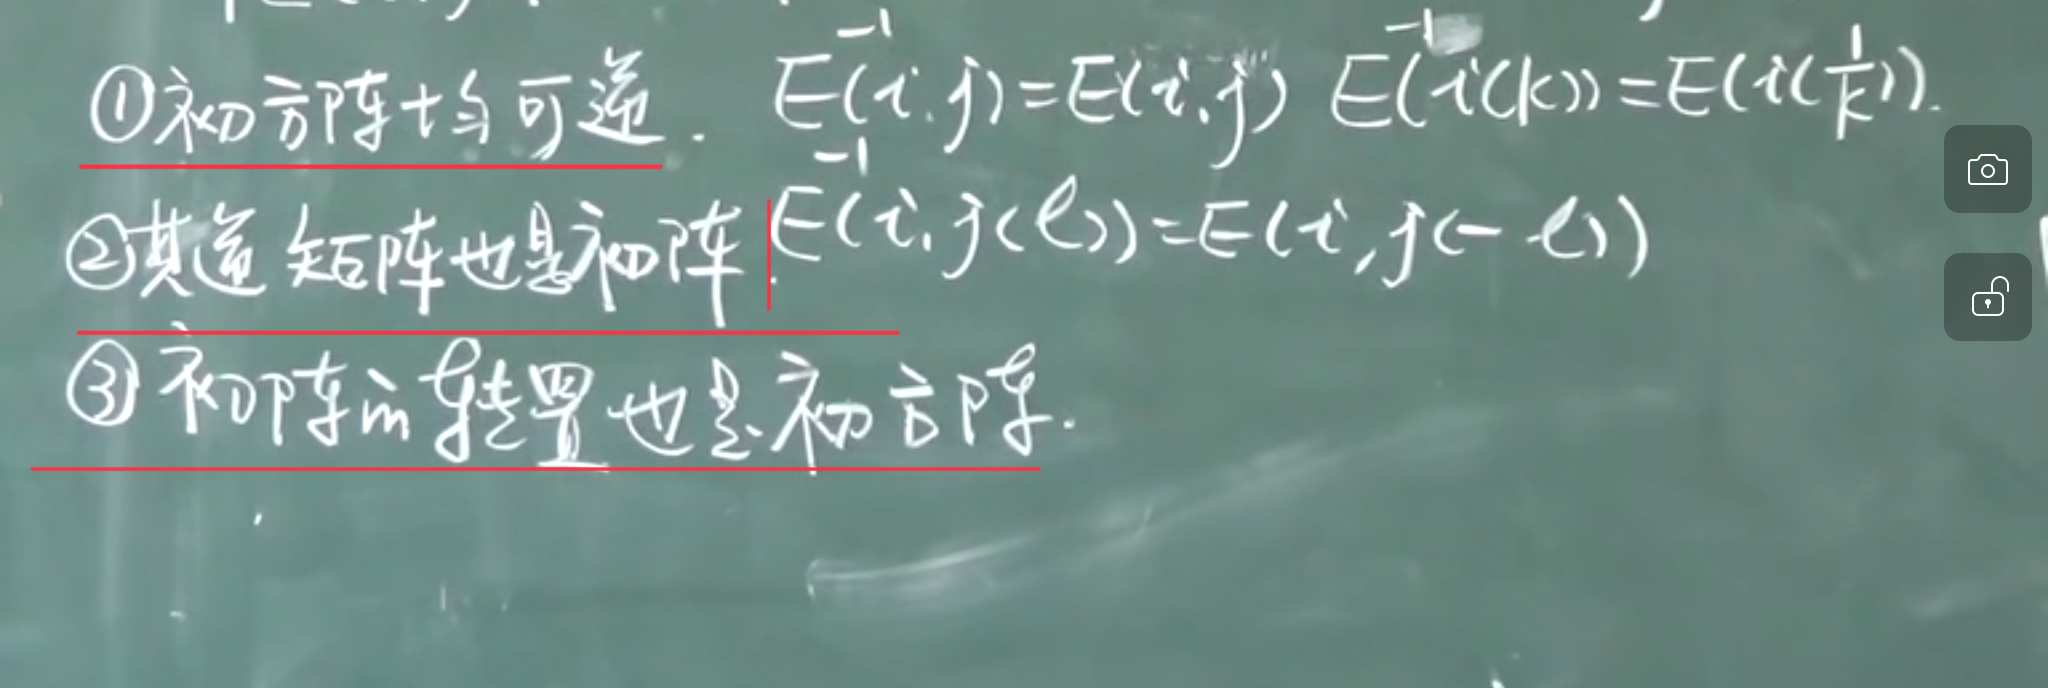 ①初方阵均可逆. E⁻¹(i.j)=E(i.j) E⁻¹(i(k))=E(i(1/k)).
②其逆矩阵也是初阵. E⁻¹(i.j(l))=E(i,j(-l))
③初阵的转置也是初方阵.